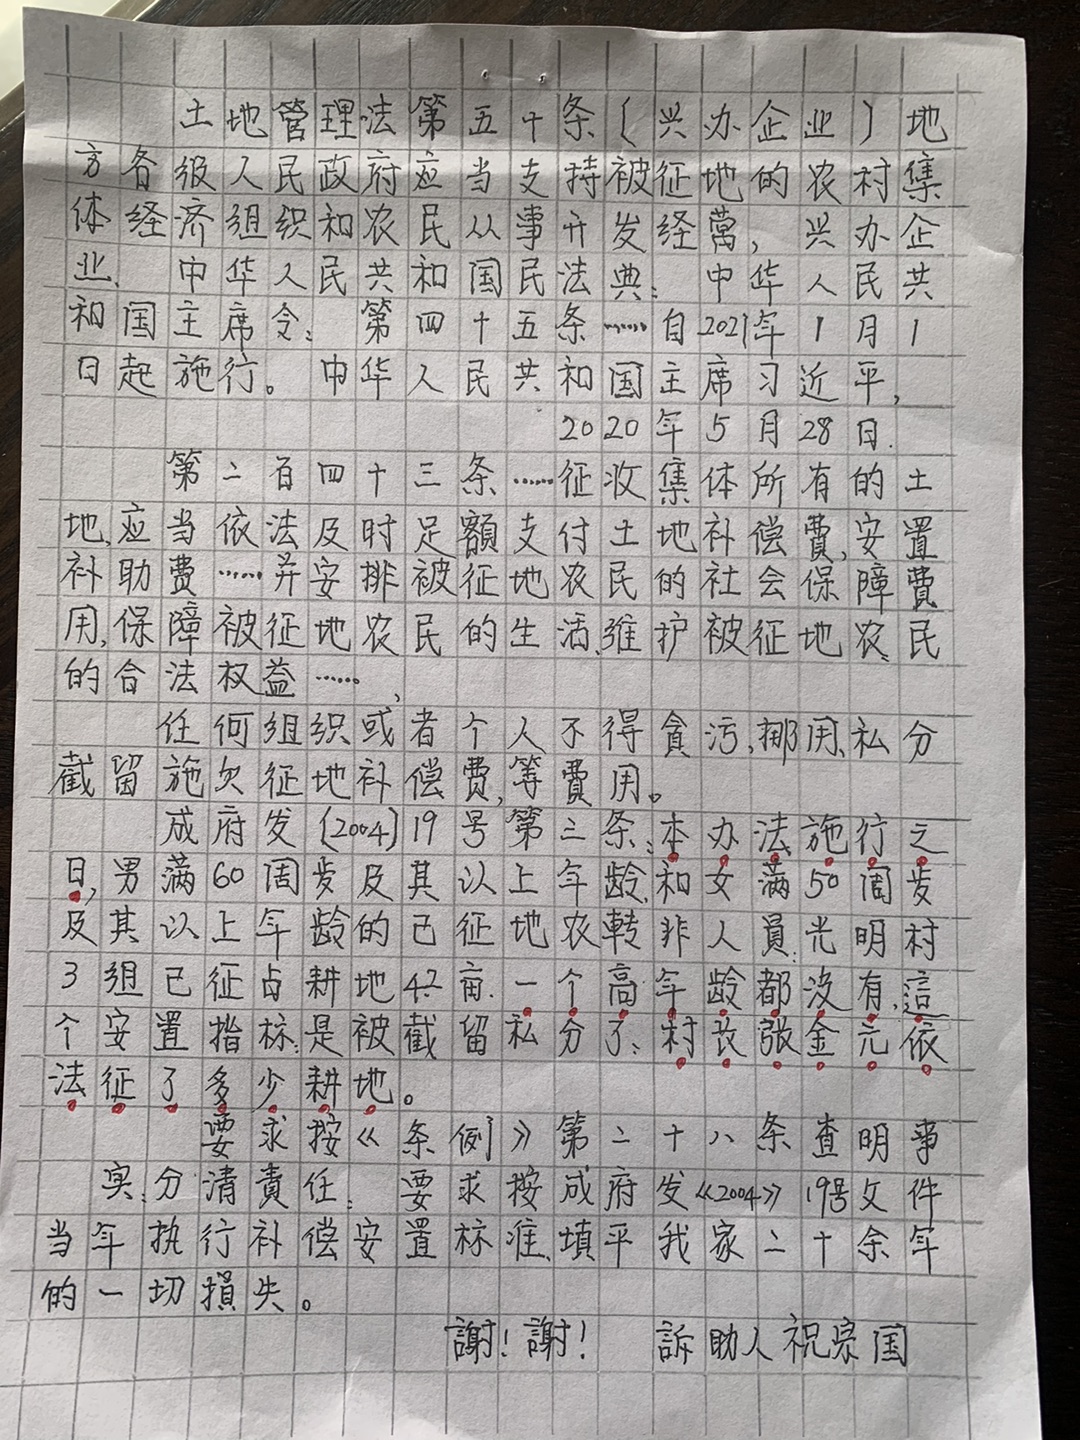 土地管理法第五十条(兴办企业)地
方各级人民政府应当支持被征地的农村集
体经济组织和农民从事开发经营,兴办企
业、中华人民共和国民法典:中华人民共
和国主席令:第四十五条……自2021年1月1
日起施行。中华人民共和国主席习近平,
2020年5月28日.
第二百四十三条……征收集体所有的土
地,应当依法及时足額支付土地补偿費,安置
补助费……并安排被征地农民的社会保障費
用,保障被征地农民的生活,维护被征地农民
的合法权益……,
任何组织或者个人不得貪污,挪用、私分
截留施欠征地补偿费,等費用。
成府发(2004)19号第三条:本办法施行之
日,男满60周岁及其以上年龄,和女满50周岁
及其以上年龄的已征地农轉非人員:光明村
3组已征占耕地42亩.一个高年龄都没有,這
个安置指标:是被截留私分了:村長張金元依
法征了多少耕地。
要求按《条例》第二十八条查明事
实:分清責任:要求按成府发《2004》19号文件
当年执行补偿安置标准,填平我家二十余年
的一切損失。
謝!謝!訴助人祝宗国